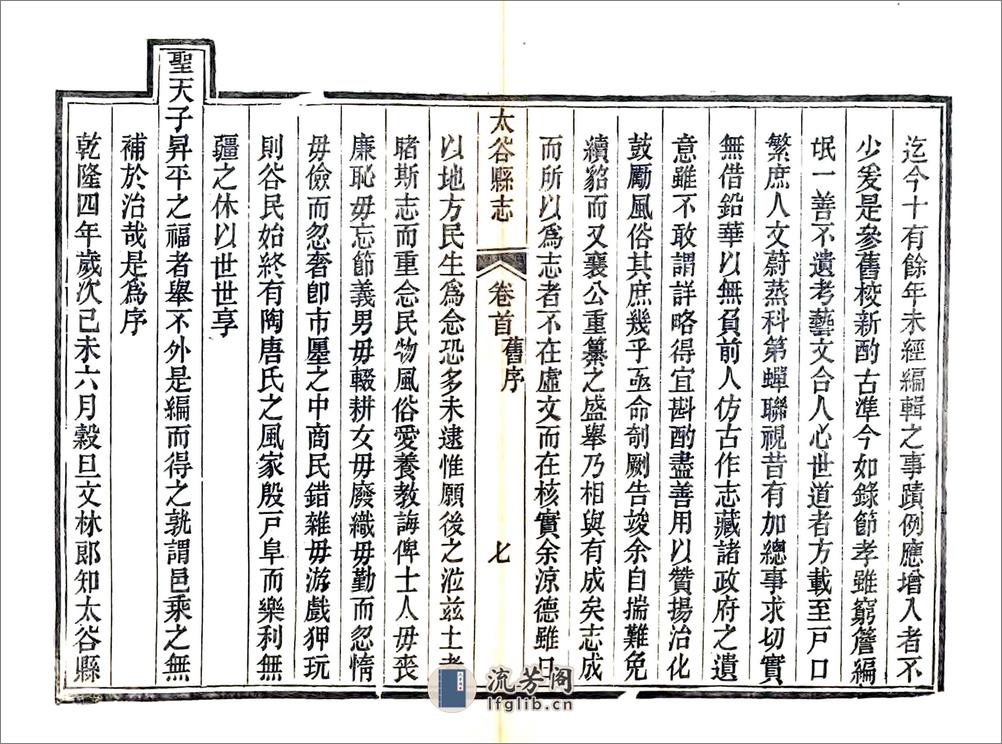 迄今十有餘年未經編輯之事蹟例應增入者不
少爰是參舊校新酌古準今如錄節孝雖窮簷編
氓一善不遺考藝文合人心世道者方載至戸口
繁庶人文蔚蒸科第蟬聯視昔有加總事求切實
無借鉛華以無負前人仿古作志藏諸政府之遺
意雖不敢謂詳略得宜斟酌盡善用以贊揚治化
鼓勵風俗其庶幾乎亟命剞劂告竣余自揣難免
續貂而又襄公重纂之盛舉乃相與有成矣志成
而所以為志者不在虛文而在核實余涼德雖日
太谷縣志 卷首 舊序 七
以地方民生為念恐多未逮惟願後之涖兹土者
睹斯志而重念民物風俗愛養教誨俾士人毋喪
廉恥毋忘節義男毋輟耕女毋廢織毋勤而忽惰
毋儉而忽奢卽市廛之中商民錯雜毋游戲狎玩
則谷民始終有陶唐氏之風家殷戸阜而樂利無
疆之休以世世享
聖天子昇平之福者舉不外是編而得之孰謂邑乘之無
補於治哉是為序
乾隆四年歲次己未六月穀旦文林郎知太谷縣
流芳阁
lfglib.cn